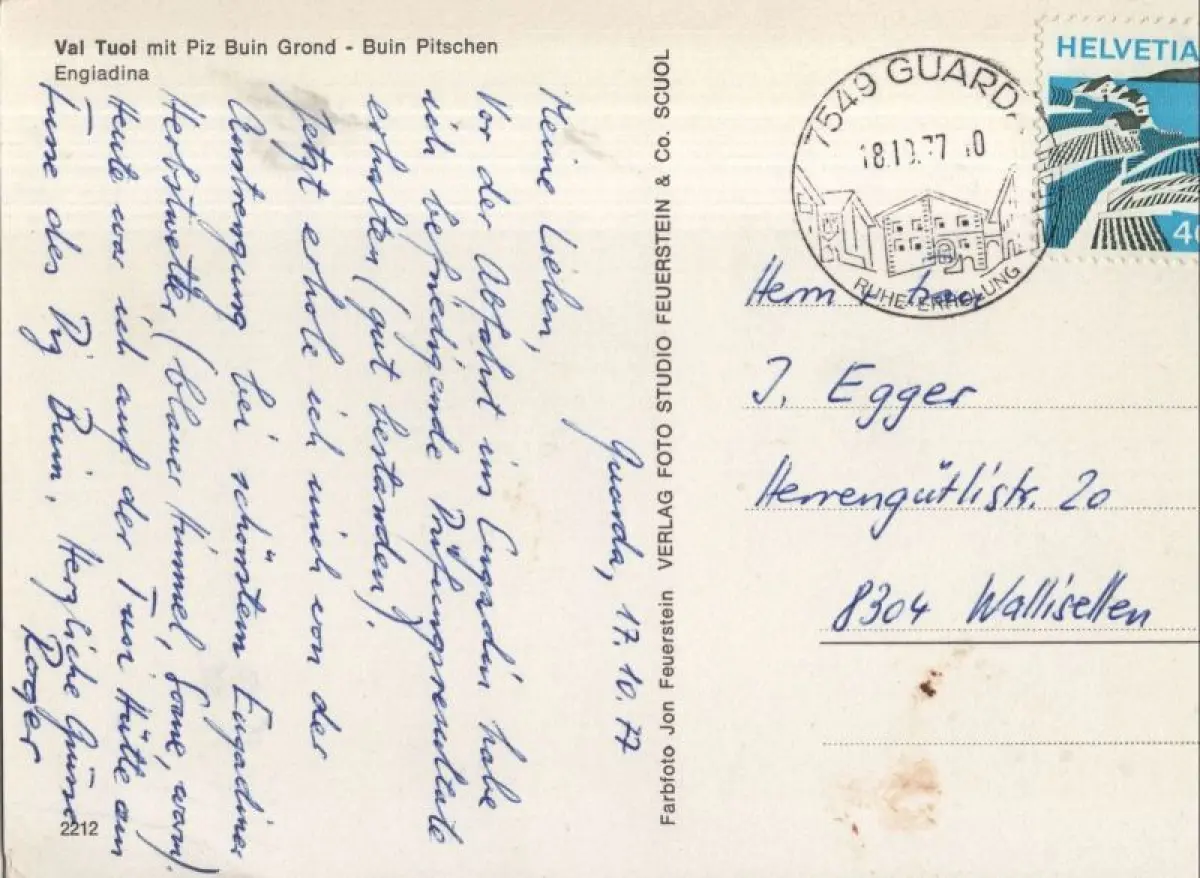 Val Tuoi mit Piz Buin Grond - Buin Pitschen
Engiadina
Guarda, 17. 10. 77
Meine Lieben,
Vor der Abfahrt ins Engadin habe
ich befriedigende Prüfungsresultate
erhalten (gut bestanden).
Jetzt erhole ich mich von der
Anstrengung bei schönstem Engadiner
Herbstwetter (blauer Himmel, Sonne, warm).
Heute war ich auf der Tuoi Hütte am
Fusse des Piz Buin. Herzliche Grüsse
Roger
2212
Farbfoto Jon Feuerstein VERLAG FOTO STUDIO FEUERSTEIN & Co. SCUOL
HELVETIA
7549 GUARD
18.10.77
RUHE-ERHOLUNG
Herrn + Frau
J. Egger
Herrengütlistr. 20
8304 Wallisellen